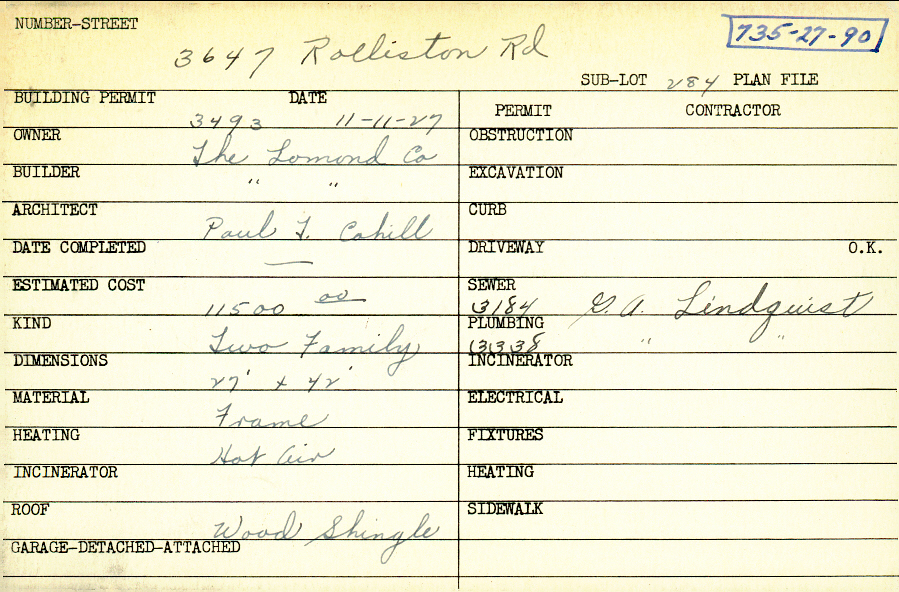 NUMBER-STREET
735-27-90
3647 Rolliston Rd
SUB-LOT 284 PLAN FILE
BUILDING PERMIT DATE
3493 11-11-27
PERMIT CONTRACTOR
OWNER The Lomond Co
BUILDER " "
ARCHITECT Paul T. Cahill
DATE COMPLETED —
ESTIMATED COST 11500 00
KIND Two Family
DIMENSIONS 27' x 42'
MATERIAL Frame
HEATING Hot Air
INCINERATOR
ROOF Wood Shingle
GARAGE-DETACHED-ATTACHED
OBSTRUCTION
EXCAVATION
CURB
DRIVEWAY O.K.
SEWER
13184 G. A. Lindquist
PLUMBING
13338 " "
INCINERATOR
ELECTRICAL
FIXTURES
HEATING
SIDEWALK